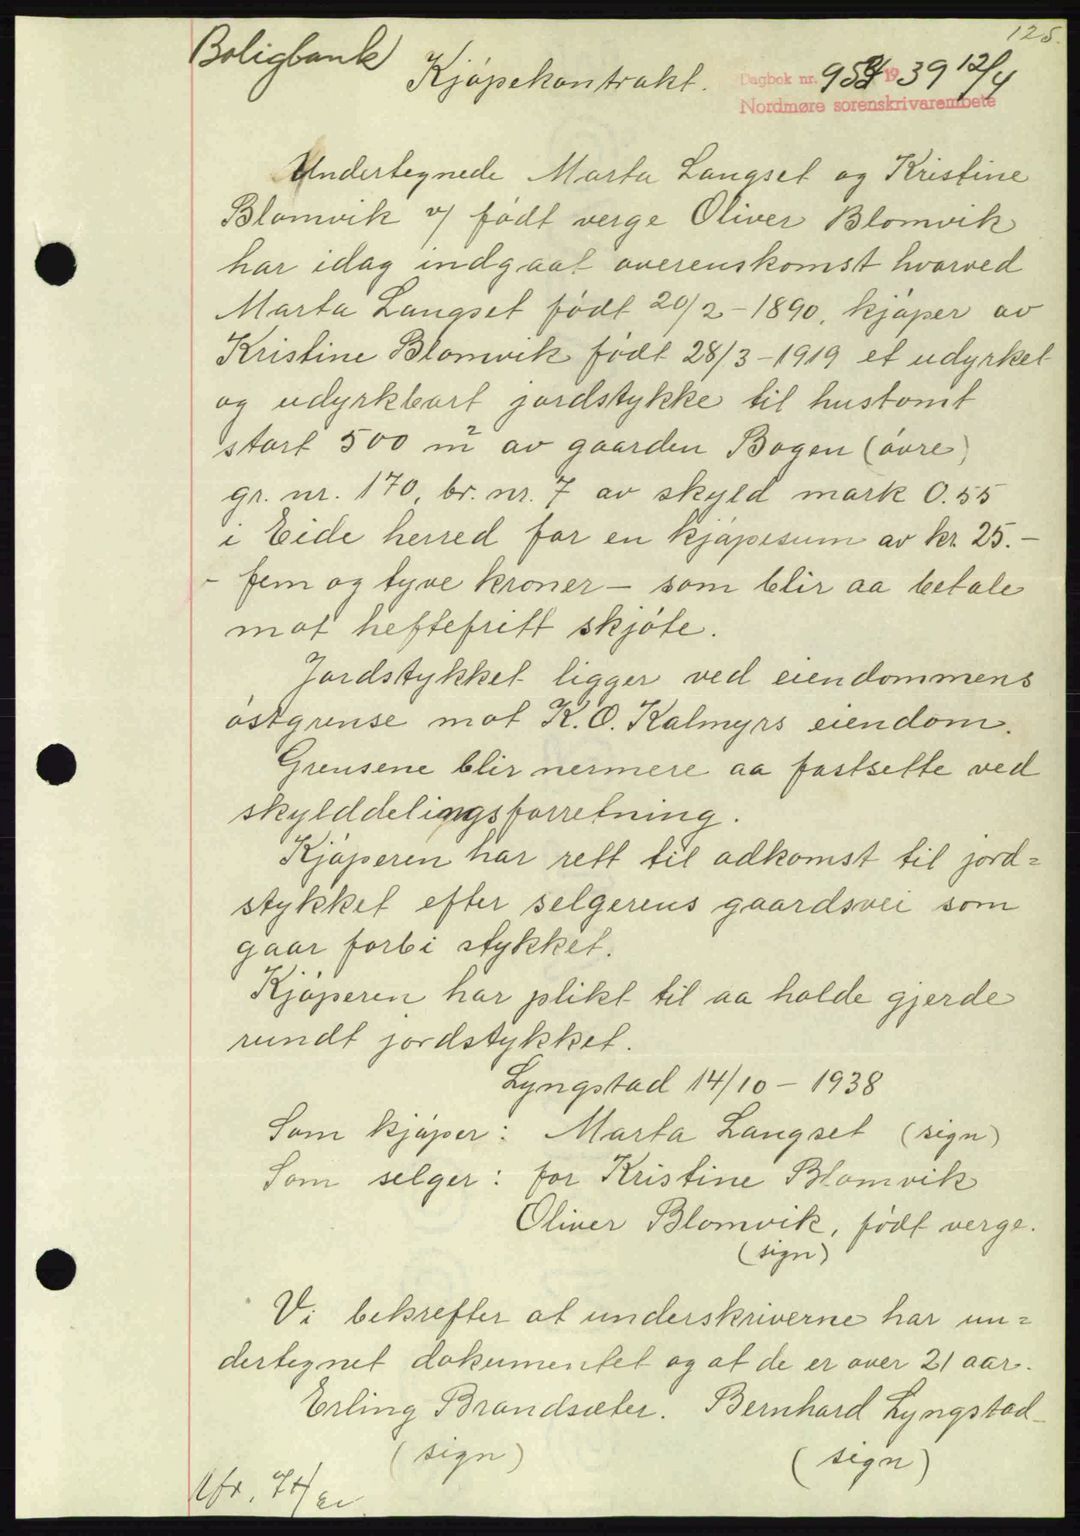 125.
Boligbank
Kjøpekontrakt.
Dagbok nr. 954 1939 12/4
Nordmøre sorenskrivarembete
Undertegnede Marta Langset og Kristine
Blomvik v/ født verge Oliver Blomvik
har idag indgaat overenskomst hvorved
Marta Langset født 20/2-1890, kjøper av
Kristine Blomvik født 28/3-1919 et udyrket
og udyrkbart jordstykke til hustomt
stort 500 m² av gaarden Bogen (øvre)
gr. nr. 170, br. nr. 7 av skyld mark 0.55
i Eide herred for en kjøpesum av kr. 25.-
- fem og tyve kroner - som blir aa betale
mot heftefritt skjøte.
Jordstykket ligger ved eiendommens
østgrense mot K. O. Kalmyrs eiendom.
Grensene blir nermere aa fastsette ved
skylddelingsforretning.
Kjøperen har rett til adkomst til jord=
stykket efter selgerens gaardsvei som
gaar forbi stykket.
Kjøperen har plikt til aa holde gjerde
rundt jordstykket.
Lyngstad 14/10 - 1938
Som kjøper: Marta Langset (sign)
Som selger: for Kristine Blomvik
Oliver Blomvik, født verge.
(sign)
Vi bekrefter at underskriverne har un=
dertegnet dokumentet og at de er over 21 aar.
Erling Brandsæter. Bernhard Lyngstad
(sign) (sign)